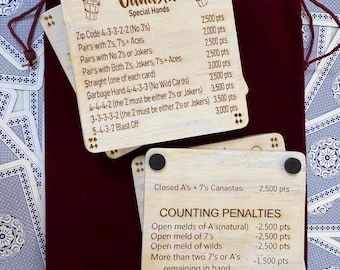 Canasta
Special Hands
Zip Code 4-3-3-2-2 (No 3's) 2,500 pts
Pairs with 2's, 7's + Aces 2,500 pts
Pairs No 2's or Jokers 2,000 pts
Pairs with Both 2's, Jokers, 7's + Aces 2,500 pts
Straight (one of each card) 3,000 pts
Garbage Hand 4-4-3-3 (No Wild Cards) 3,500 pts
4-4-4-2 (the 2 must be either 2's or Jokers) 3,500 pts
3-3-3-3-2 (the 2 must be either 2's or Jokers) 3,500 pts
5-4-3-2 Blast Off 3,000 pts
Closed A's + 7's Canastas 2,500 pts
COUNTING PENALTIES
Open melds of A's(natural) -2,500 pts
Open meld of 7's -2,500 pts
Open meld of wilds -2,500 pts
More than two 7's or A's -1,500 pts
remaining in hand